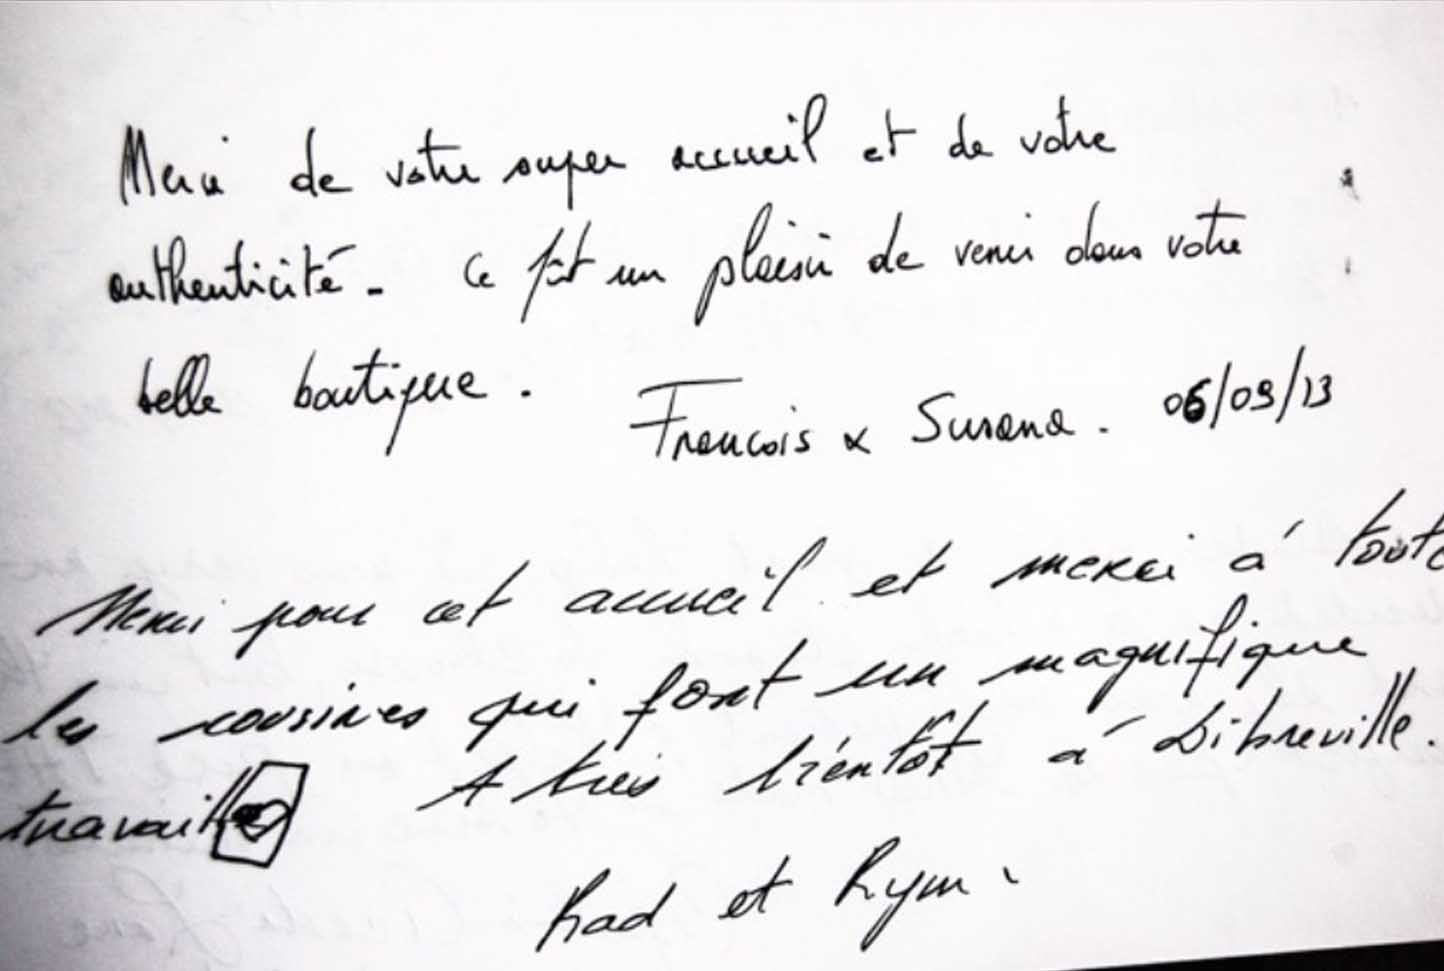 Merci de votre super accueil et de votre
authenticité. Ce fût un plaisir de venir dans votre
belle boutique.
Francois & Susana. 06/09/13
Merci pour cet accueil et merci à toute
les cousines qui font un magnifique
travail
A très bientôt à Libreville.
Rad et Rym.